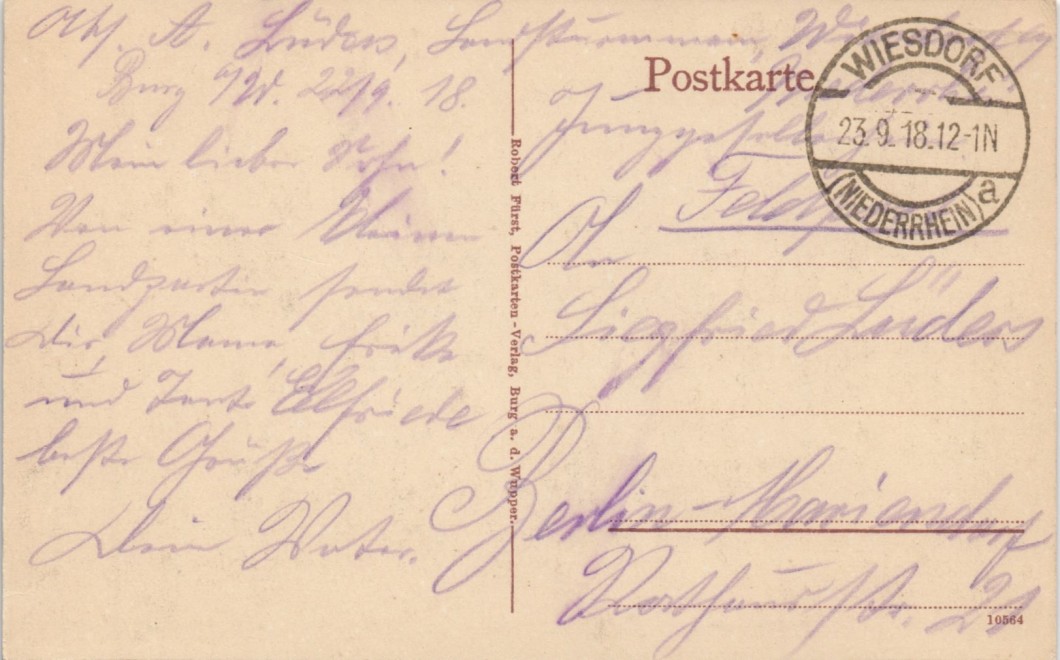 Abs. A. Lüders, Landsturmmann, Wiesdorf
Burg a/d. 22/9. 18.
Mein lieber Sohn!
Von einer kleinen
Landpartie sendet
Dir, Mama, Erika
und Tante Elfriede
beste Grüße
Dein Vater.
Robert Fürst, Postkarten-Verlag, Burg a. d. Wupper.
Postkarte
WIESDORF
23.9.18.12-1N
(NIEDERRHEIN) a
An
Siegfried Lüders
Berlin-Mariendorf
Rathausstr. 21
10564